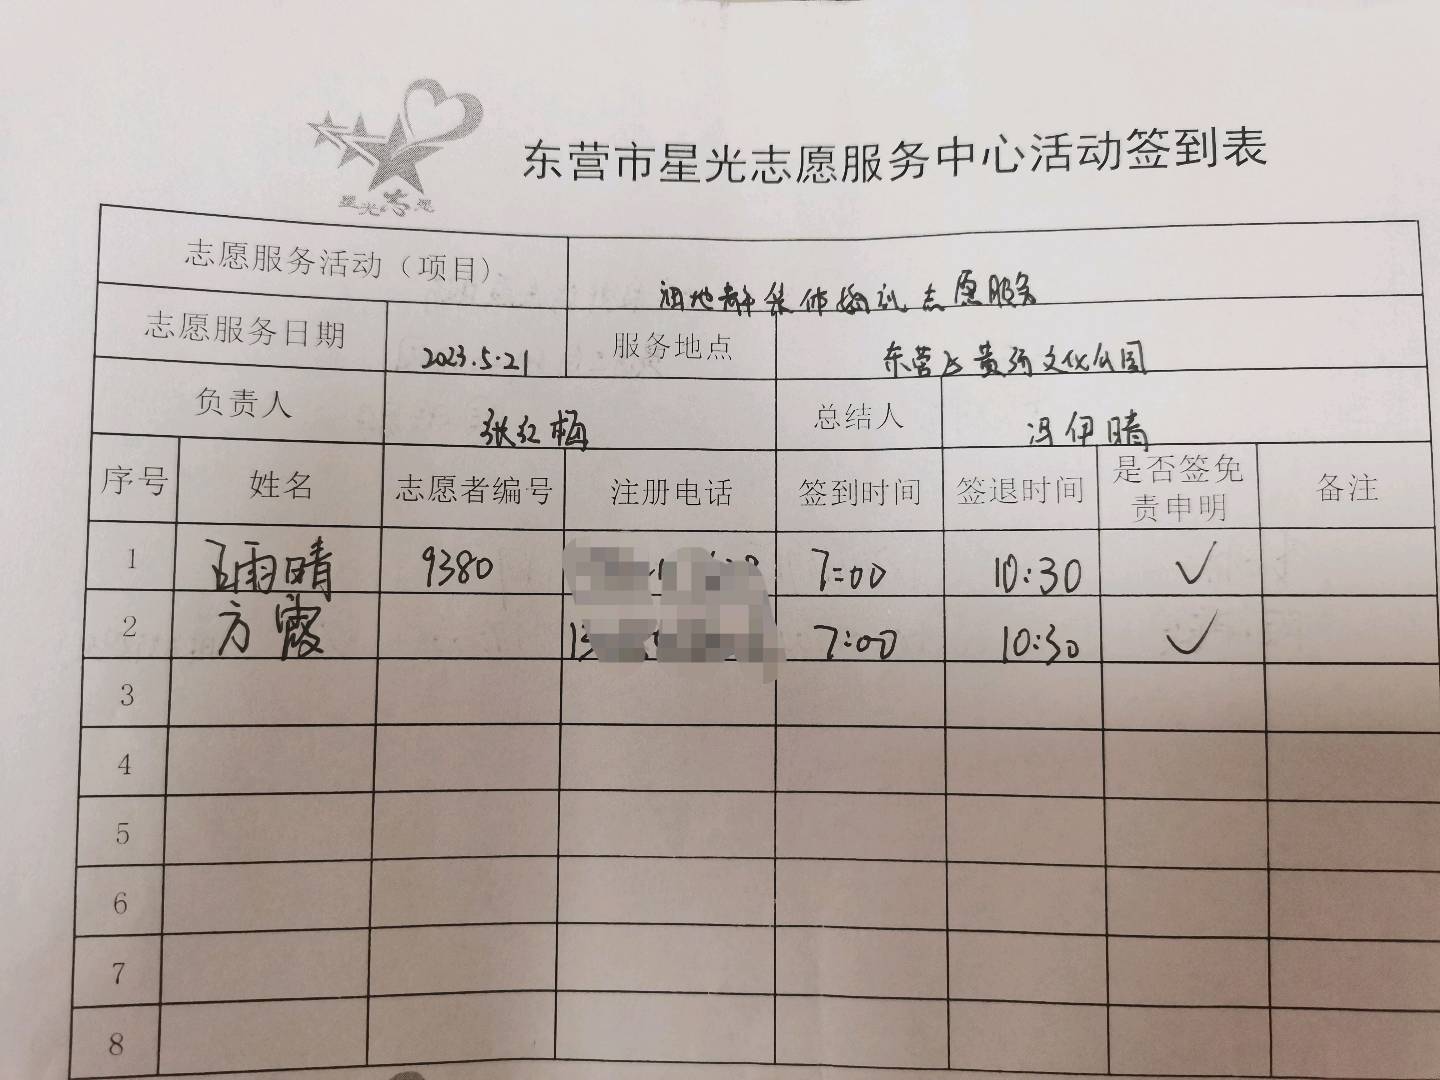 星光志愿
东营市星光志愿服务中心活动签到表
志愿服务活动（项目） 志愿服务
志愿服务日期 2023.5.21 服务地点 东营区黄河文化公园
负责人 张红梅 总结人 冯伊晴
序号 姓名 志愿者编号 注册电话 签到时间 签退时间 是否签免
责申明 备注
1 王雨晴 9380 7:00 10:30 ✓
2 方霞 13 7:00 10:30 ✓
3
4
5
6
7
8